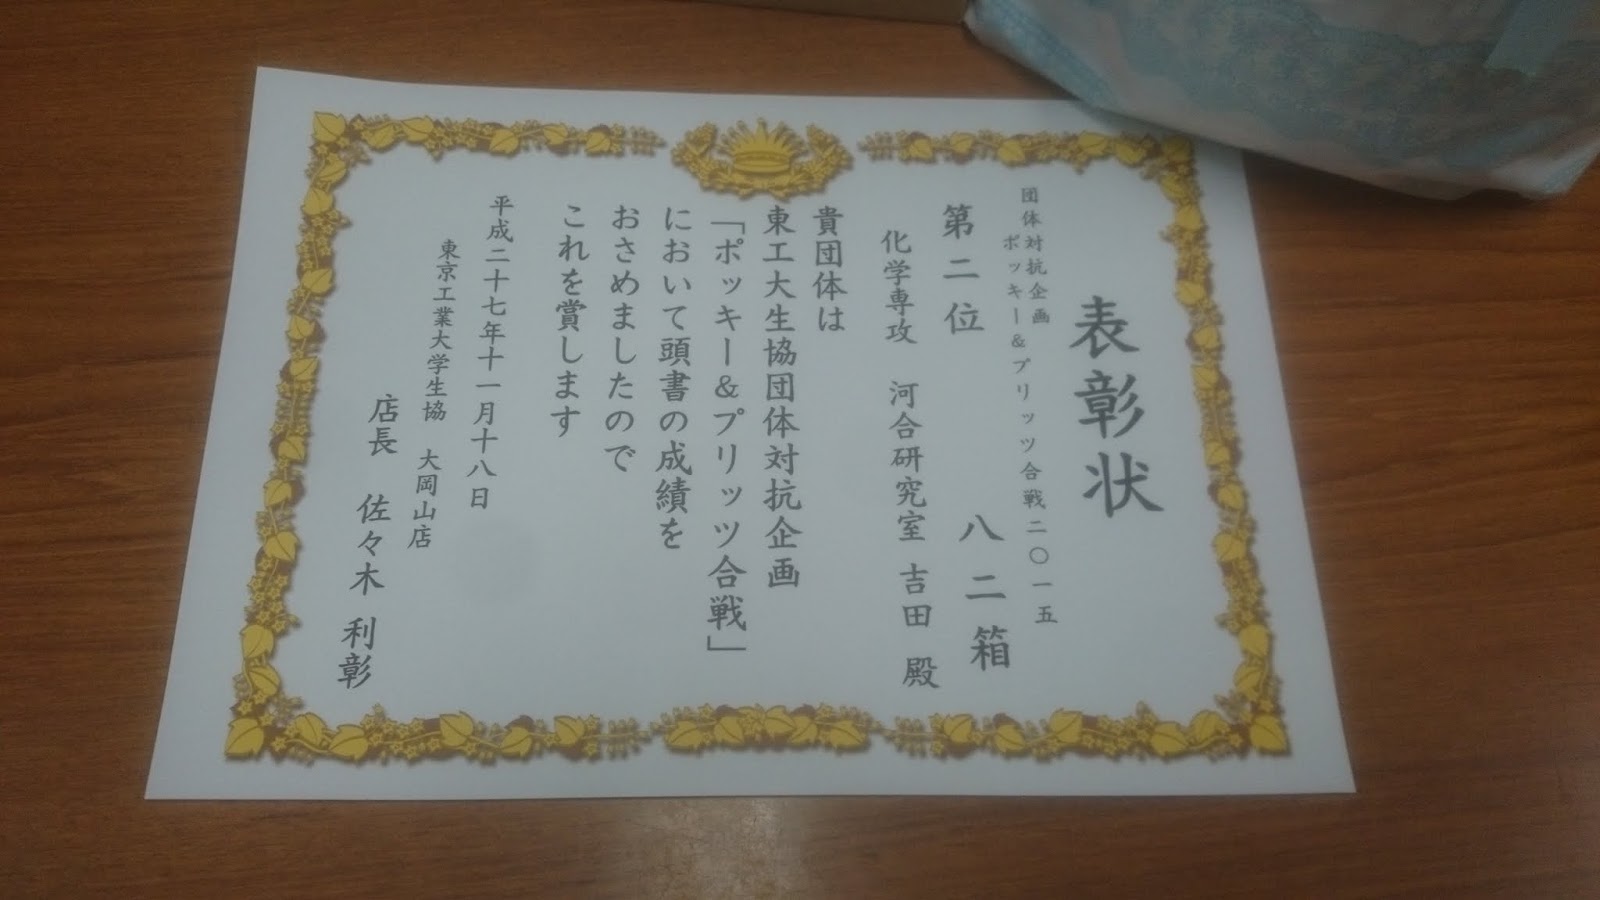 表彰状
団体対抗企画
ポッキー&プリッツ合戦二〇一五
第二位 八二箱
化学専攻 河合研究室 吉田 殿
貴団体は
東工大生協団体対抗企画
「ポッキー&プリッツ合戦」
において頭書の成績を
おさめましたので
これを賞します
平成二十七年十一月十八日
東京工業大学生協 大岡山店
店長 佐々木 利彰